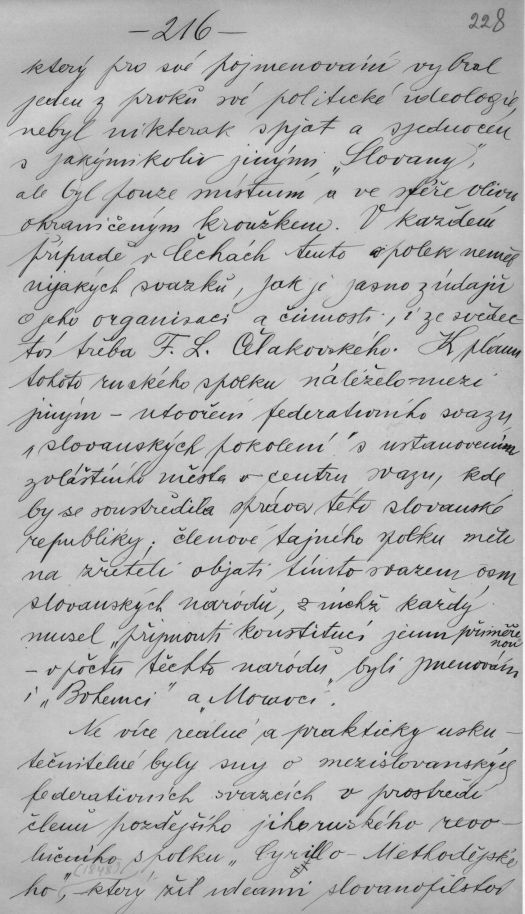 — 216 —
228
který pro své pojmenování vybral
jeden z prvků své politické ideologie,
nebyl nikterak spjat a sjednocen
s jakýmikoliv jinými „Slovany",
ale byl pouze místním a ve sféře vlivu
ohraničeným kroužkem. V každém
případě v Čechách tento spolek neměl
nijakých svazků, jak je jasno z údajů
o jeho organisaci a činnosti, i ze svědec-
tví třeba F. L. Čelakovského. K plánu
tohoto ruského spolku náleželo – mezi
jiným – utvoření federativního svazu
„slovanských pokolení" s ustanovením
zvláštního města v centru svazu, kde
by se soustředila správa této slovanské
republiky; členové tajného spolku měli
na zřeteli objati tímto svazem osm
slovanských národů, z nichž každý
musel „přijmouti konstituci jemu přiměře-
nou"
– v počtu těchto národů byli jmenováni
i „Bohemci" a „Moravci".
Ne více reálné a prakticky usku-
tečnitelné byly sny o mezislovanských
federativních svazcích v prostředí
členů pozdějšího jihoruského revo-
lučního spolku „Cyrillo-Methodějské-
(1848)
ho", – který žil ideami slovanofilství